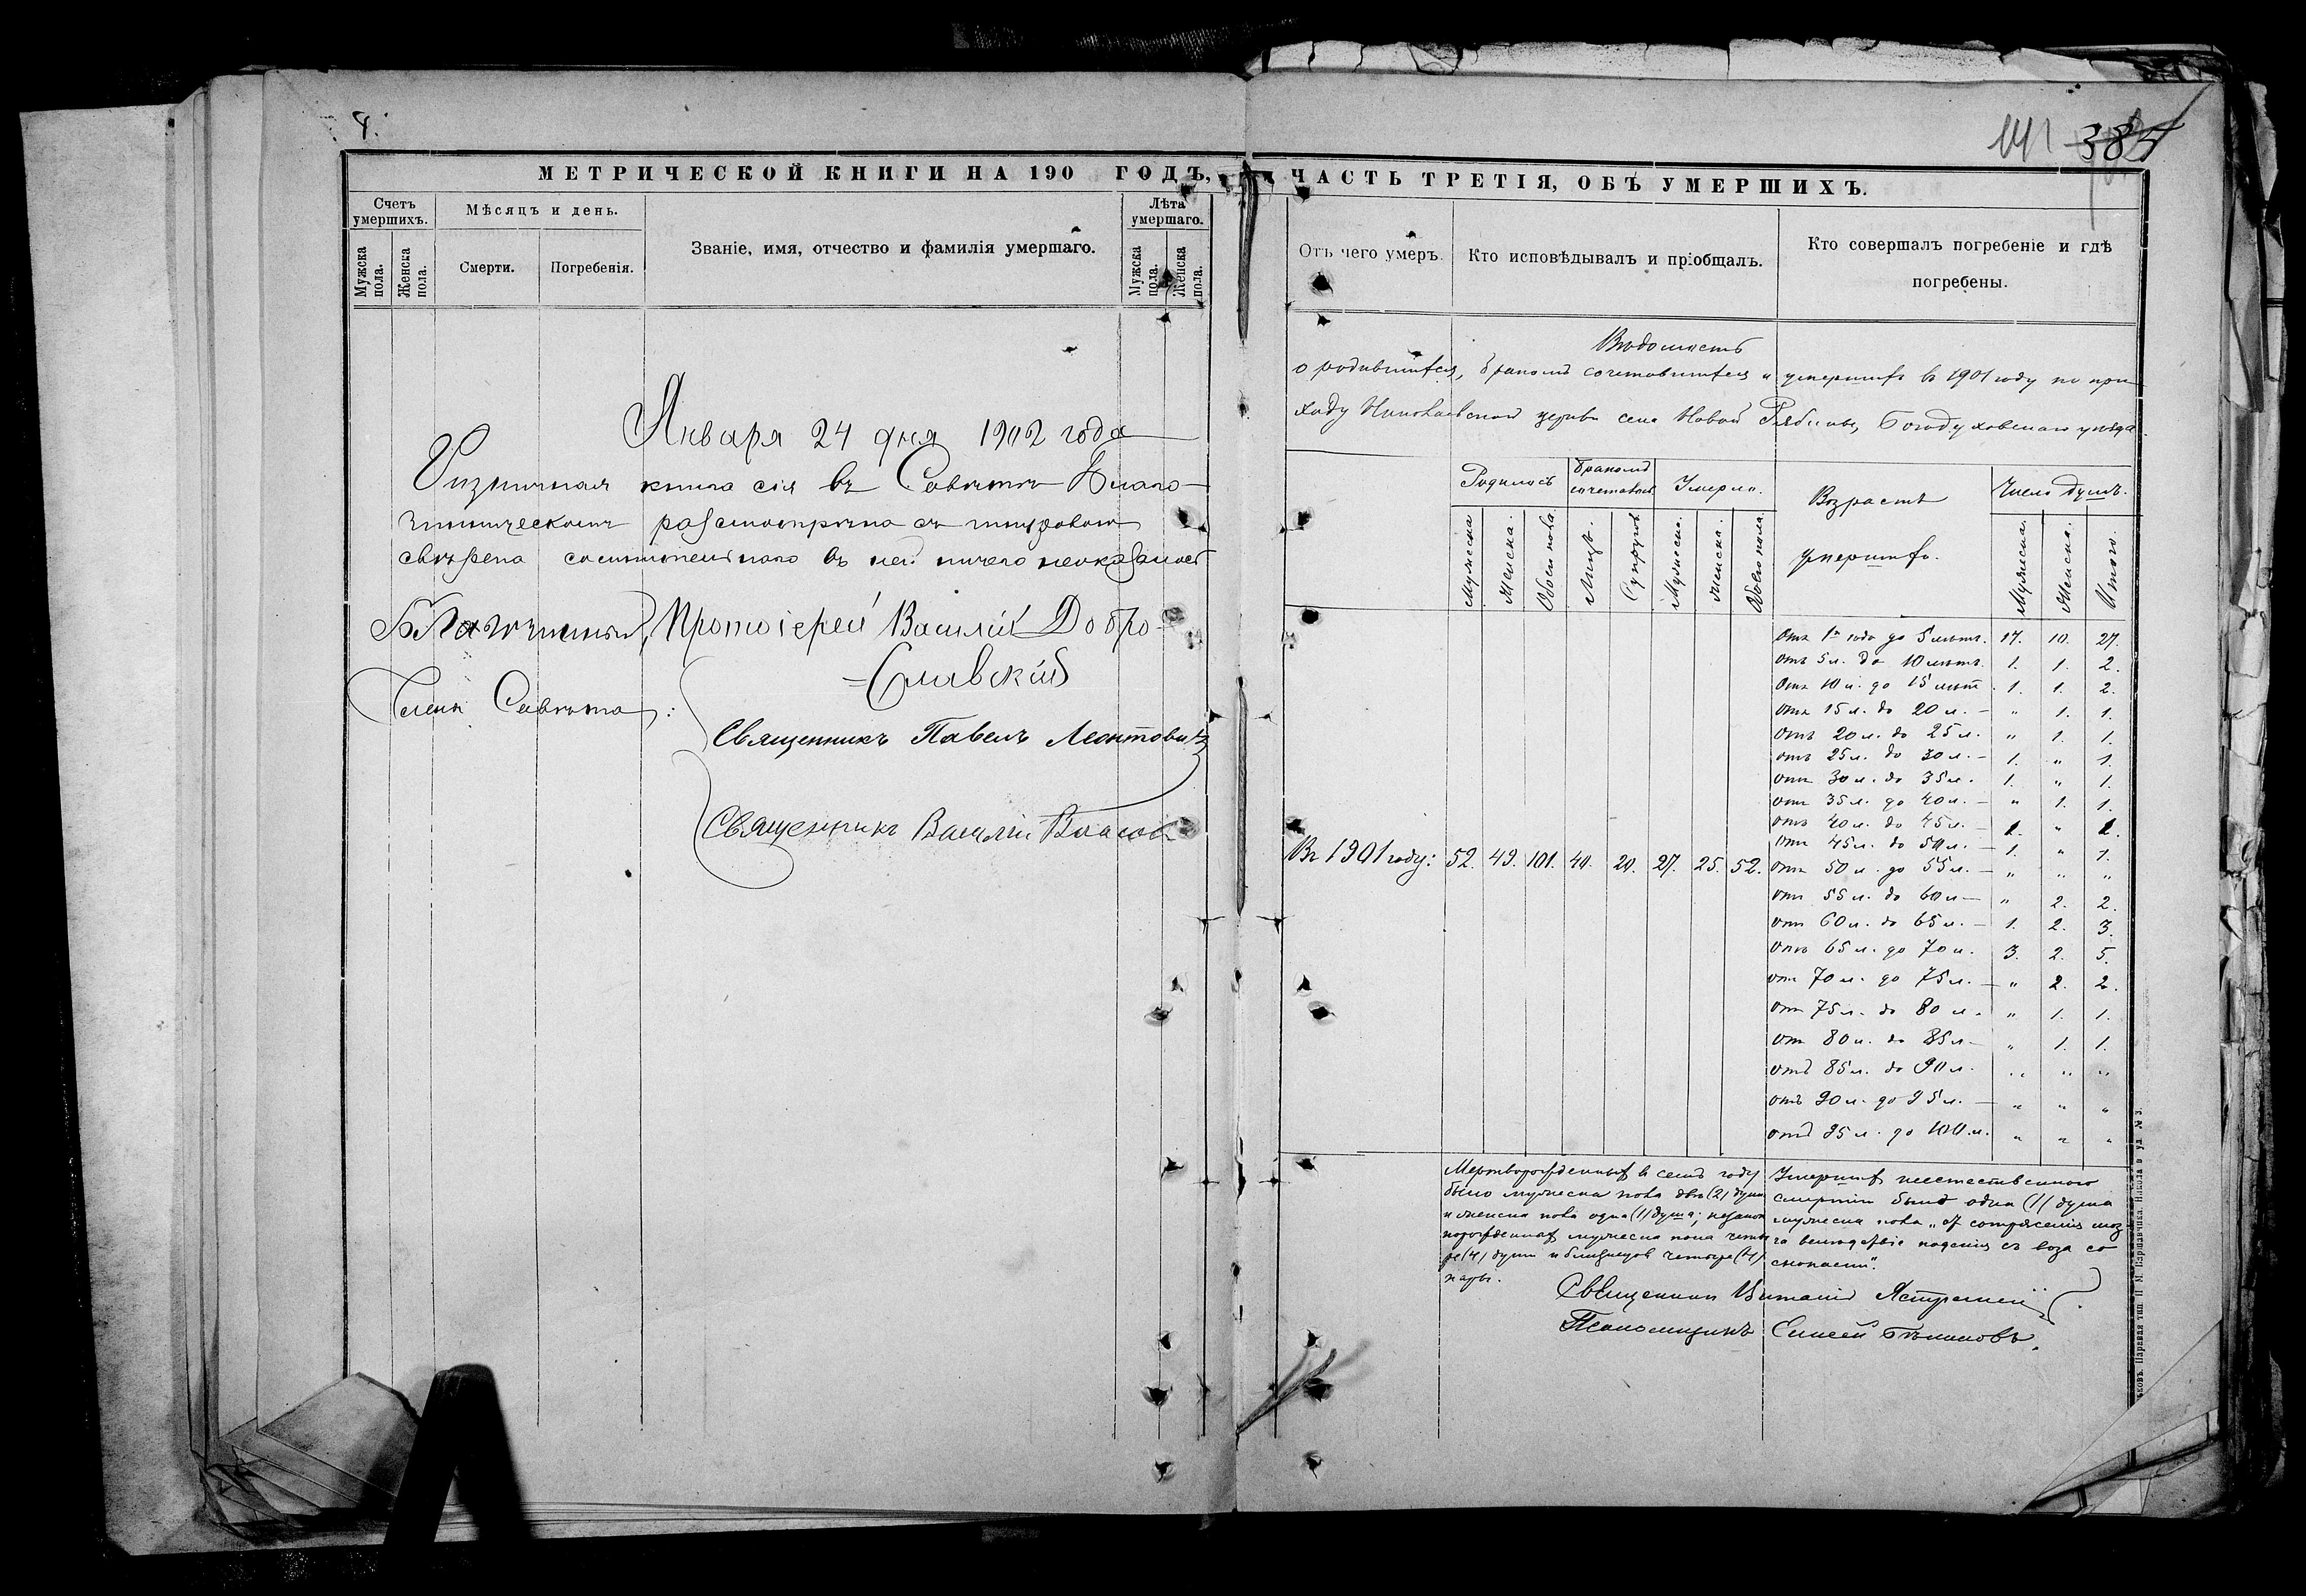 8.
МЕТРИЧЕСКОЙ КНИГИ НА 190 ГОДЪ,
Счетъ умершихъ.
Мѣсяцъ и день.
Званіе, имя, отчество и фамилія умершаго.
Лѣта умершаго.
Мужска пола.
Женска пола.
Смерти.
Погребенія.
Мужска пола.
Женска пола.
Января 24 дня 1902 года
книга сія въ Совѣтѣ Благо-
чинническомъ разсмотрѣна съ
свѣрена въ ней ничего неоказалось
Благочинный, Протоіерей Василій Добро-
=славскій
Члены Совѣта:
Священникъ Павелъ Леонтовичъ
Священникъ Василій Власовъ
141 385
ЧАСТЬ ТРЕТІЯ, ОБЪ УМЕРШИХЪ.
Отъ чего умеръ.
Кто исповѣдывалъ и пріобщалъ.
Кто совершалъ погребеніе и гдѣ погребены.
Вѣдомость
о родившихся, бракомъ сочетавшихся и умершихъ въ 1901 году по при-
ходу Николаевской церкви села Новой Рябины, Богодуховскаго уѣзда.
Родилось
Бракомъ сочеталось
Умерло.
Возрастъ умершихъ.
Число душъ.
Мужеска
Женска.
Обоего пола
Лицъ.
Супруговъ
Мужеска.
Женска.
Обоего пола
Мужеска.
Женска.
Итого.
отъ 1го года до 5 лѣтъ. 17. 10. 27.
отъ 5 л. до 10 лѣтъ. 1. 1. 2.
отъ 10 л. до 15 лѣтъ. 1. 1. 2.
отъ 15 л. до 20 л. — „ 1. 1.
отъ 20 л. до 25 л. „ 1. 1.
отъ 25 л. до 30 л. — 1. „ 1.
отъ 30 л. до 35 л. 1. „ 1.
отъ 35 л. до 40 л. — „ 1. 1.
отъ 40 л. до 45 л. — 1. „ 1.
отъ 45 л. до 50 л. — 1. „ 1.
Въ 1901 году: 52. 49. 101. 40. 20. 27. 25. 52. отъ 50 л. до 55 л. — „ „ „
отъ 55 л. до 60 л — „ 2. 2.
отъ 60 л. до 65 л. — 1. 2. 3.
отъ 65 л. до 70 л. 3. 2. 5.
отъ 70 л. до 75 л. — „ 2. 2.
отъ 75 л. до 80 л. „ 1. 1.
отъ 80 л. до 85 л — „ 1. 1.
отъ 85 л. до 90 л. „ „ „
отъ 90 л. до 95 л. — „ „ „
отъ 95 л. до 100 л. „ „ „
Мертворожденныхъ въ семъ году
было мужеска пола двѣ (2) души
и женска пола одна (1) душа; незакон
норожденныхъ мужеска пола четы
ре (4) души и близнецовъ четыре (4)
пары.
Умершихъ неестественною
смертію была одна (1) душа
мужеска пола „отъ сотрясенія моз
га вслѣдствіе паденія съ воза со
снопами".
Священникъ Виталій Ястремскій
Псаломщикъ Елисей Бѣликовъ.